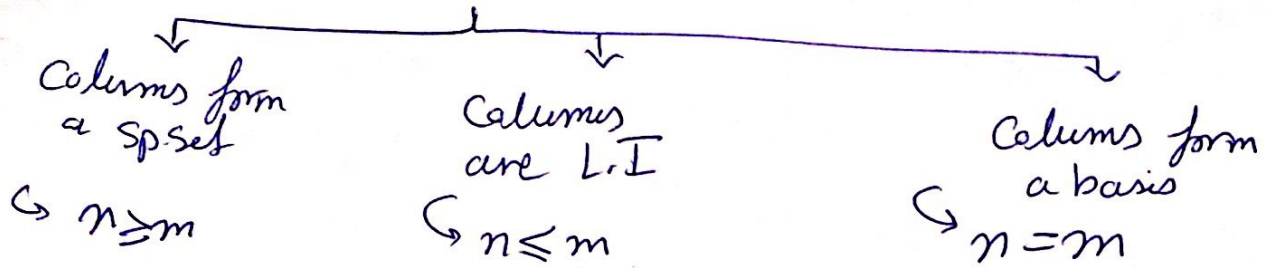 Colums form
a Sp.Set
↪ n ≥ m
Calumes
are L.I
↪ n ≤ m
Colums form
a basis
↪ n = m